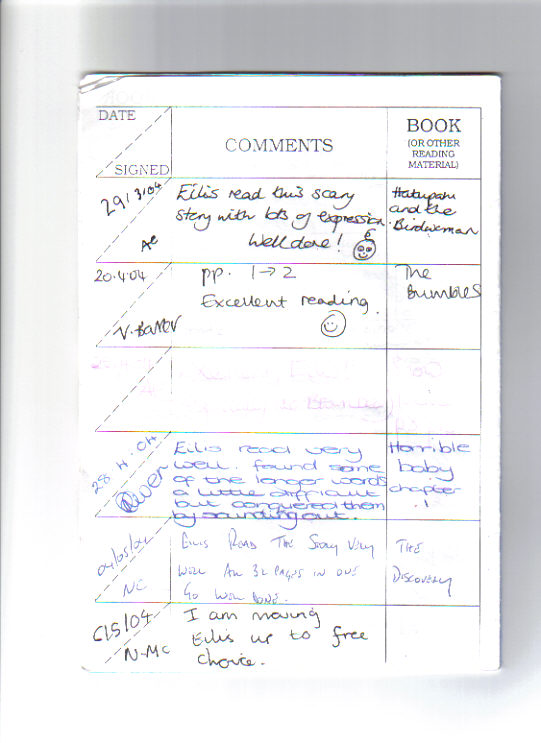 DATE
SIGNED
COMMENTS
BOOK
(OR OTHER
READING
MATERIAL)
29/3/04
Ae
Eilis read this scary
story with lots of expression.
Well done!
Hatupatu
and the
Birdwoman
20.4.04
V. Barker
pp. 1→2
Excellent reading.
The
Brumbles
28.4.04
Eilis read very
well. found some
of the longer words
a little difficult
but conquered them
by sounding out.
Horrible
baby
chapter
1
04/05/04
NC
Eilis Read The Story Very
Well All 32 pages in one
Go Well Done.
The
Discovery
N-MC
I am moving
Eilis up to free
choice.